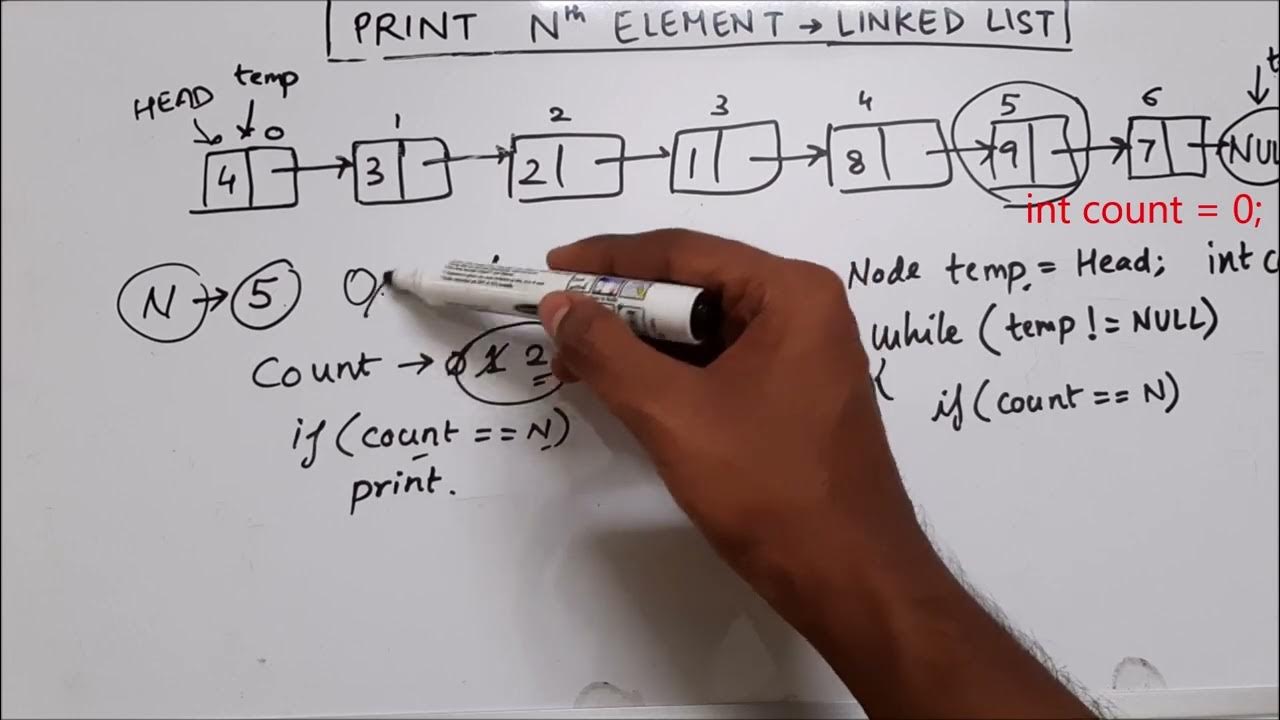 PRINT Nth ELEMENT → LINKED LIST
HEAD temp
0 1 2 3 4 5 6
4 → 3 → 2 → 1 → 8 → 9 → 7 → NUL
int count = 0;
N → 5
Node temp = Head; int c
while (temp != NULL)
Count → 0 1 2
{
if (count == N)
if (count == N)
print.